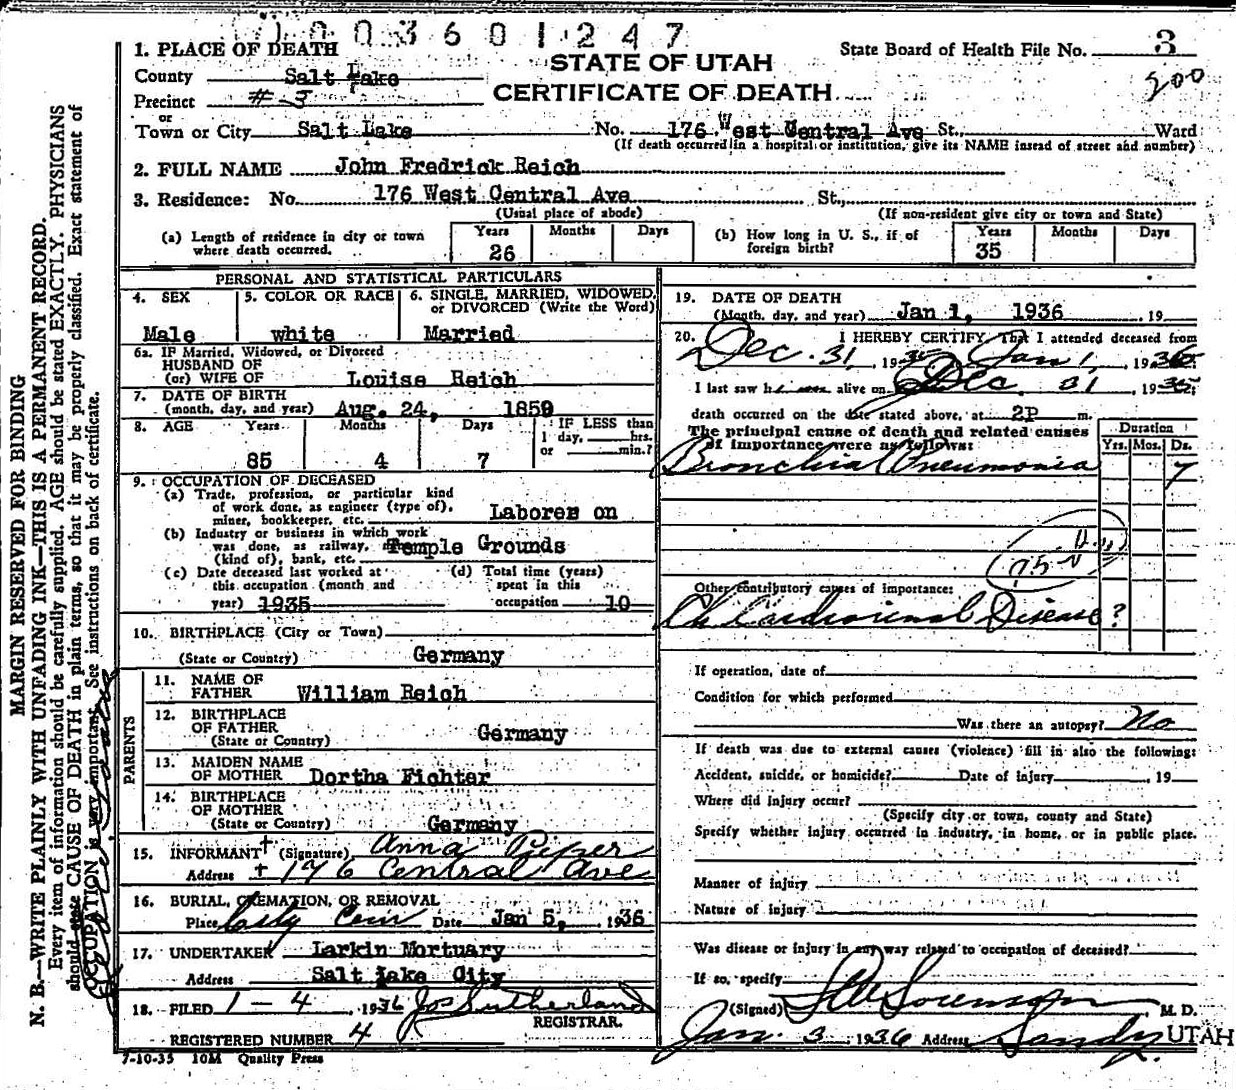 003601247
1. PLACE OF DEATH
STATE OF UTAH
CERTIFICATE OF DEATH
State Board of Health File No. 3
200
County Salt Lake
Precinct #3
or
Town or City Salt Lake No. 176 West Central Ave St., Ward
(If death occurred in a hospital or institution, give its NAME insead of street and number)
2. FULL NAME John Fredrick Reich
3. Residence: No. 176 West Central Ave St.,
(Usual place of abode) (If non-resident give city or town and State)
(a) Length of residence in city or town where death occurred. Years 26 Months Days
(b) How long in U. S., if of foreign birth? Years 35 Months Days
PERSONAL AND STATISTICAL PARTICULARS
4. SEX Male
5. COLOR OR RACE white
6. SINGLE, MARRIED, WIDOWED, or DIVORCED (Write the Word) Married
6a. IF Married, Widowed, or Divorced
HUSBAND OF
(or) WIFE OF Louise Reich
7. DATE OF BIRTH
(month, day, and year) Aug. 24, 1850
8. AGE Years 85 Months 4 Days 7 IF LESS than 1 day, hrs. or min.?
9. OCCUPATION OF DECEASED
(a) Trade, profession, or particular kind
of work done, as engineer (type of),
miner, bookkeeper, etc. Laborer on
(b) Industry or business in which work
was done, as railway,
(kind of), bank, etc. Temple Grounds
(c) Date deceased last worked at
this occupation (month and
year) 1935
(d) Total time (years)
spent in this
occupation 10
10. BIRTHPLACE (City or Town)
(State or Country) Germany
PARENTS
11. NAME OF
FATHER William Reich
12. BIRTHPLACE
OF FATHER
(State or Country) Germany
13. MAIDEN NAME
OF MOTHER Dortha Fichter
14. BIRTHPLACE
OF MOTHER
(State or Country) Germany
15. INFORMANT (Signature) Anna Pieper
Address 176 Central Ave
16. BURIAL, CREMATION, OR REMOVAL
Place City Cem Date Jan 5, 1936
17. UNDERTAKER Larkin Mortuary
Address Salt Lake City
18. FILED 1-4, 1936 Jos Sutherland
REGISTRAR.
REGISTERED NUMBER 4
7-10-35 10M Quality Press
19. DATE OF DEATH
(Month, day, and year) Jan 1, 1936, 19
20. I HEREBY CERTIFY, That I attended deceased from
Dec. 31, 1935 Jan 1, 1936
I last saw h alive on Dec 31 1935
death occurred on the date stated above, at 2P m.
The principal cause of death and related causes
of importance were as follows:
Duration
Yrs. Mos. Ds.
Bronchial Pneumonia 7
Other contributory causes of importance:
Ch Cardiorenal Disease ?
If operation, date of
Condition for which performed
Was there an autopsy? No
If death was due to external causes (violence) fill in also the following:
Accident, suicide, or homicide? Date of injury , 19
Where did injury occur?
(Specify city or town, county and State)
Specify whether injury occurred in industry, in home, or in public place.
Manner of injury
Nature of injury
Was disease or injury in any way related to occupation of deceased?
If so, specify
(Signed) Sorenson, M. D.
Jan. 3 1936 Address Sandy UTAH
MARGIN RESERVED FOR BINDING
N. B.—WRITE PLAINLY WITH UNFADING INK—THIS IS A PERMANENT RECORD.
Every item of information should be carefully supplied. AGE should be stated EXACTLY. PHYSICIANS
should state CAUSE OF DEATH in plain terms, so that it may be properly classified. Exact statement of
OCCUPATION is very important. See instructions on back of certificate.